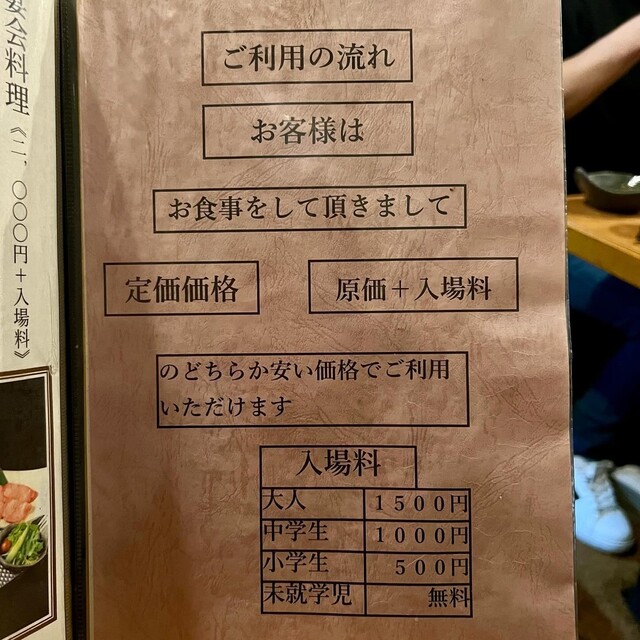 ご利用の流れ
お客様は
お食事をして頂きまして
定価価格
原価＋入場料
のどちらか安い価格でご利用
いただけます
入場料
大人 １５００円
中学生 １０００円
小学生 ５００円
未就学児 無料
宴会料理《二、〇〇〇円＋入場料》